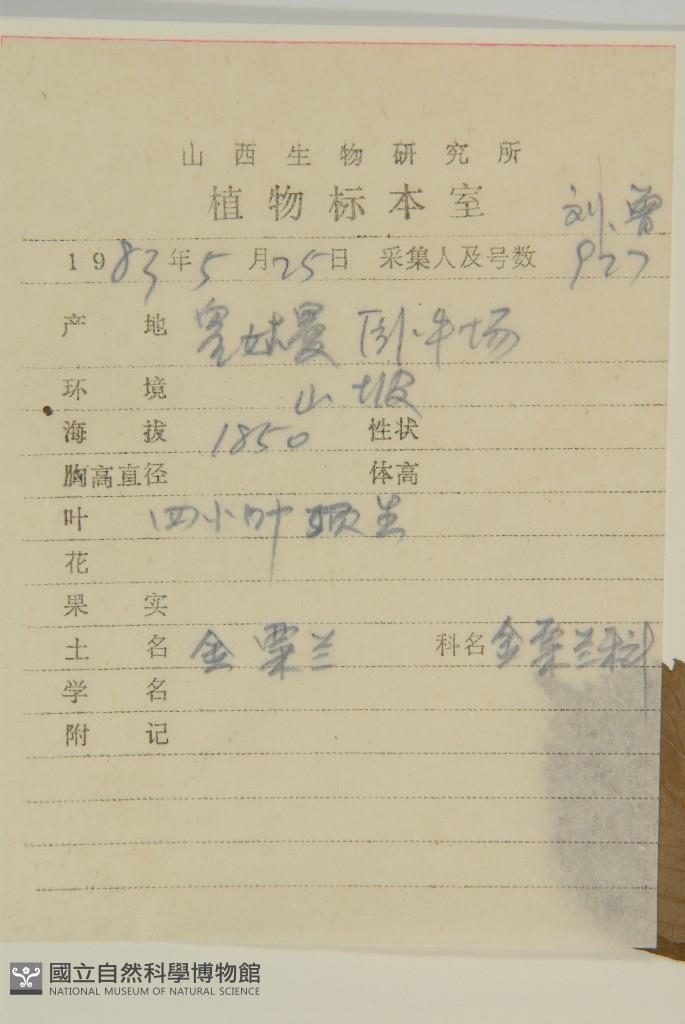 山西生物研究所
植物标本室
刘、曾
1983年5月25日 采集人及号数 927
产地 卧牛场
环境 山坡
海拔 1850 性状
胸高直径 体高
叶 四小叶顶生
花
果实
土名 金粟兰 科名 金粟兰科
学名
附记
國立自然科學博物館
NATIONAL MUSEUM OF NATURAL SCIENCE